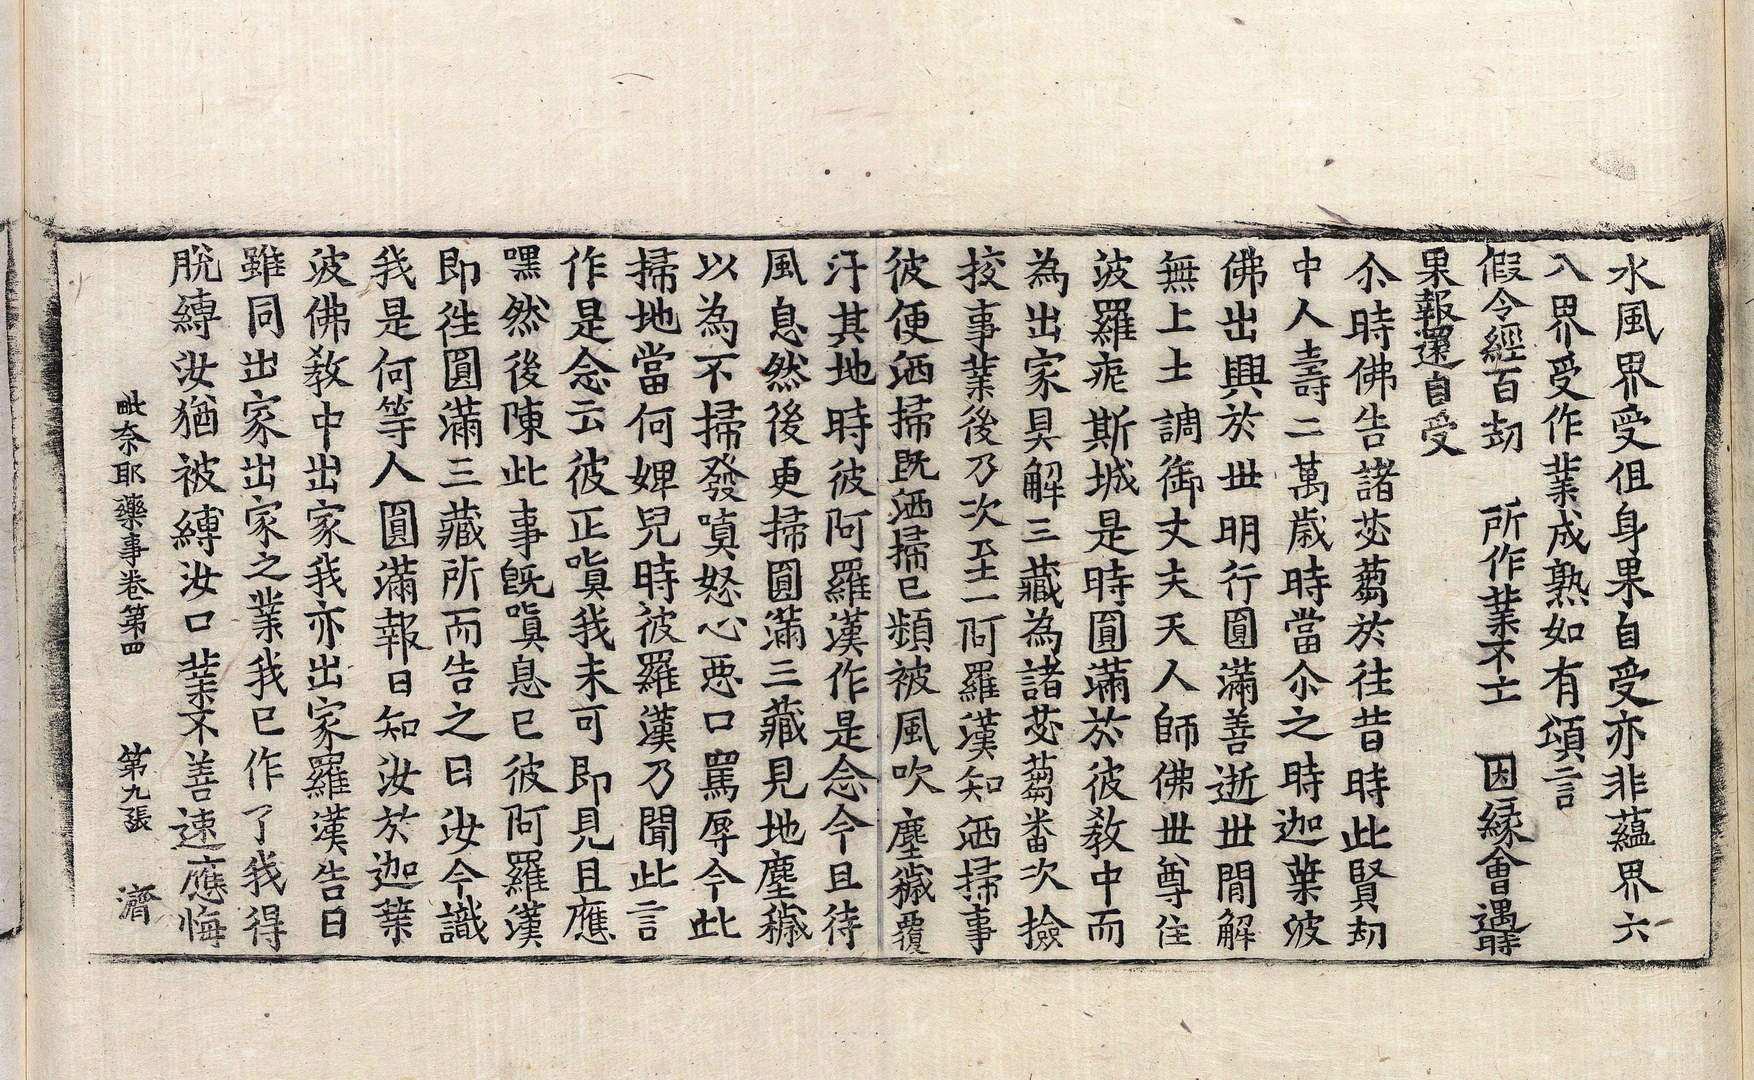 水風界受但身果自受亦非蘊界六
入界受作業成熟如有頌言
假令經百劫　所作業不亡　因緣會遇時
果報還自受
尒時佛告諸苾蒭於往昔時此賢劫
中人壽二萬歲時當尒之時迦葉波
佛出興於世明行圓滿善逝世間解
無上士調御丈夫天人師佛世尊住
波羅痆斯城是時圓滿於彼教中而
為出家具解三藏為諸苾蒭番次撿
挍事業後乃次至一阿羅漢知洒掃事
彼便洒掃既洒掃已頻被風吹塵穢覆
汙其地時彼阿羅漢作是念今且待
風息然後更掃圓滿三藏見地塵穢
以為不掃發嗔怒心惡口罵辱今此
掃地當何婢兒時彼羅漢乃聞此言
作是念云彼正嗔我未可即見且應
嘿然後陳此事旣嗔息已彼阿羅漢
即徃圓滿三藏所而告之曰汝今識
我是何等人圓滿報曰知汝於迦葉
波佛教中出家我亦出家羅漢告曰
雖同出家出家之業我已作了我得
脫縛汝猶被縛汝口業不善速應悔
毗奈耶藥事卷第四　第九張　濟